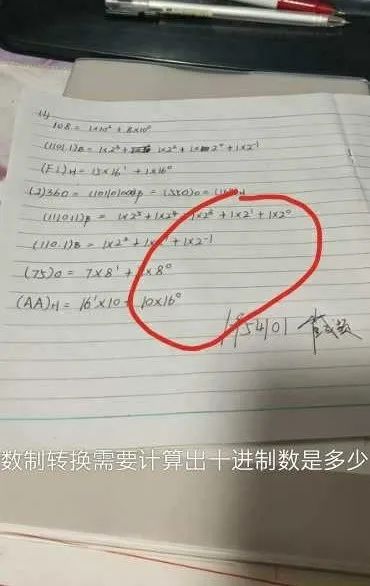 (1)
108 = 1×10² + 8×10⁰
(1101.1)B = 1×2³ + 1×2² + 1×2⁰ + 1×2⁻¹
(F1)H = 15×16¹ + 1×16⁰
(2) 360 = (101101000)B = (550)O =
(11011)B = 1×2⁴ + 1×2³ + 1×2¹ + 1×2⁰
(110.1)B = 1×2² + 1×2¹ + 1×2⁻¹
(75)O = 7×8¹ + ×8⁰
(AA)H = 16¹×10 + 10×16⁰
1954101
数制转换需要计算出十进制数是多少